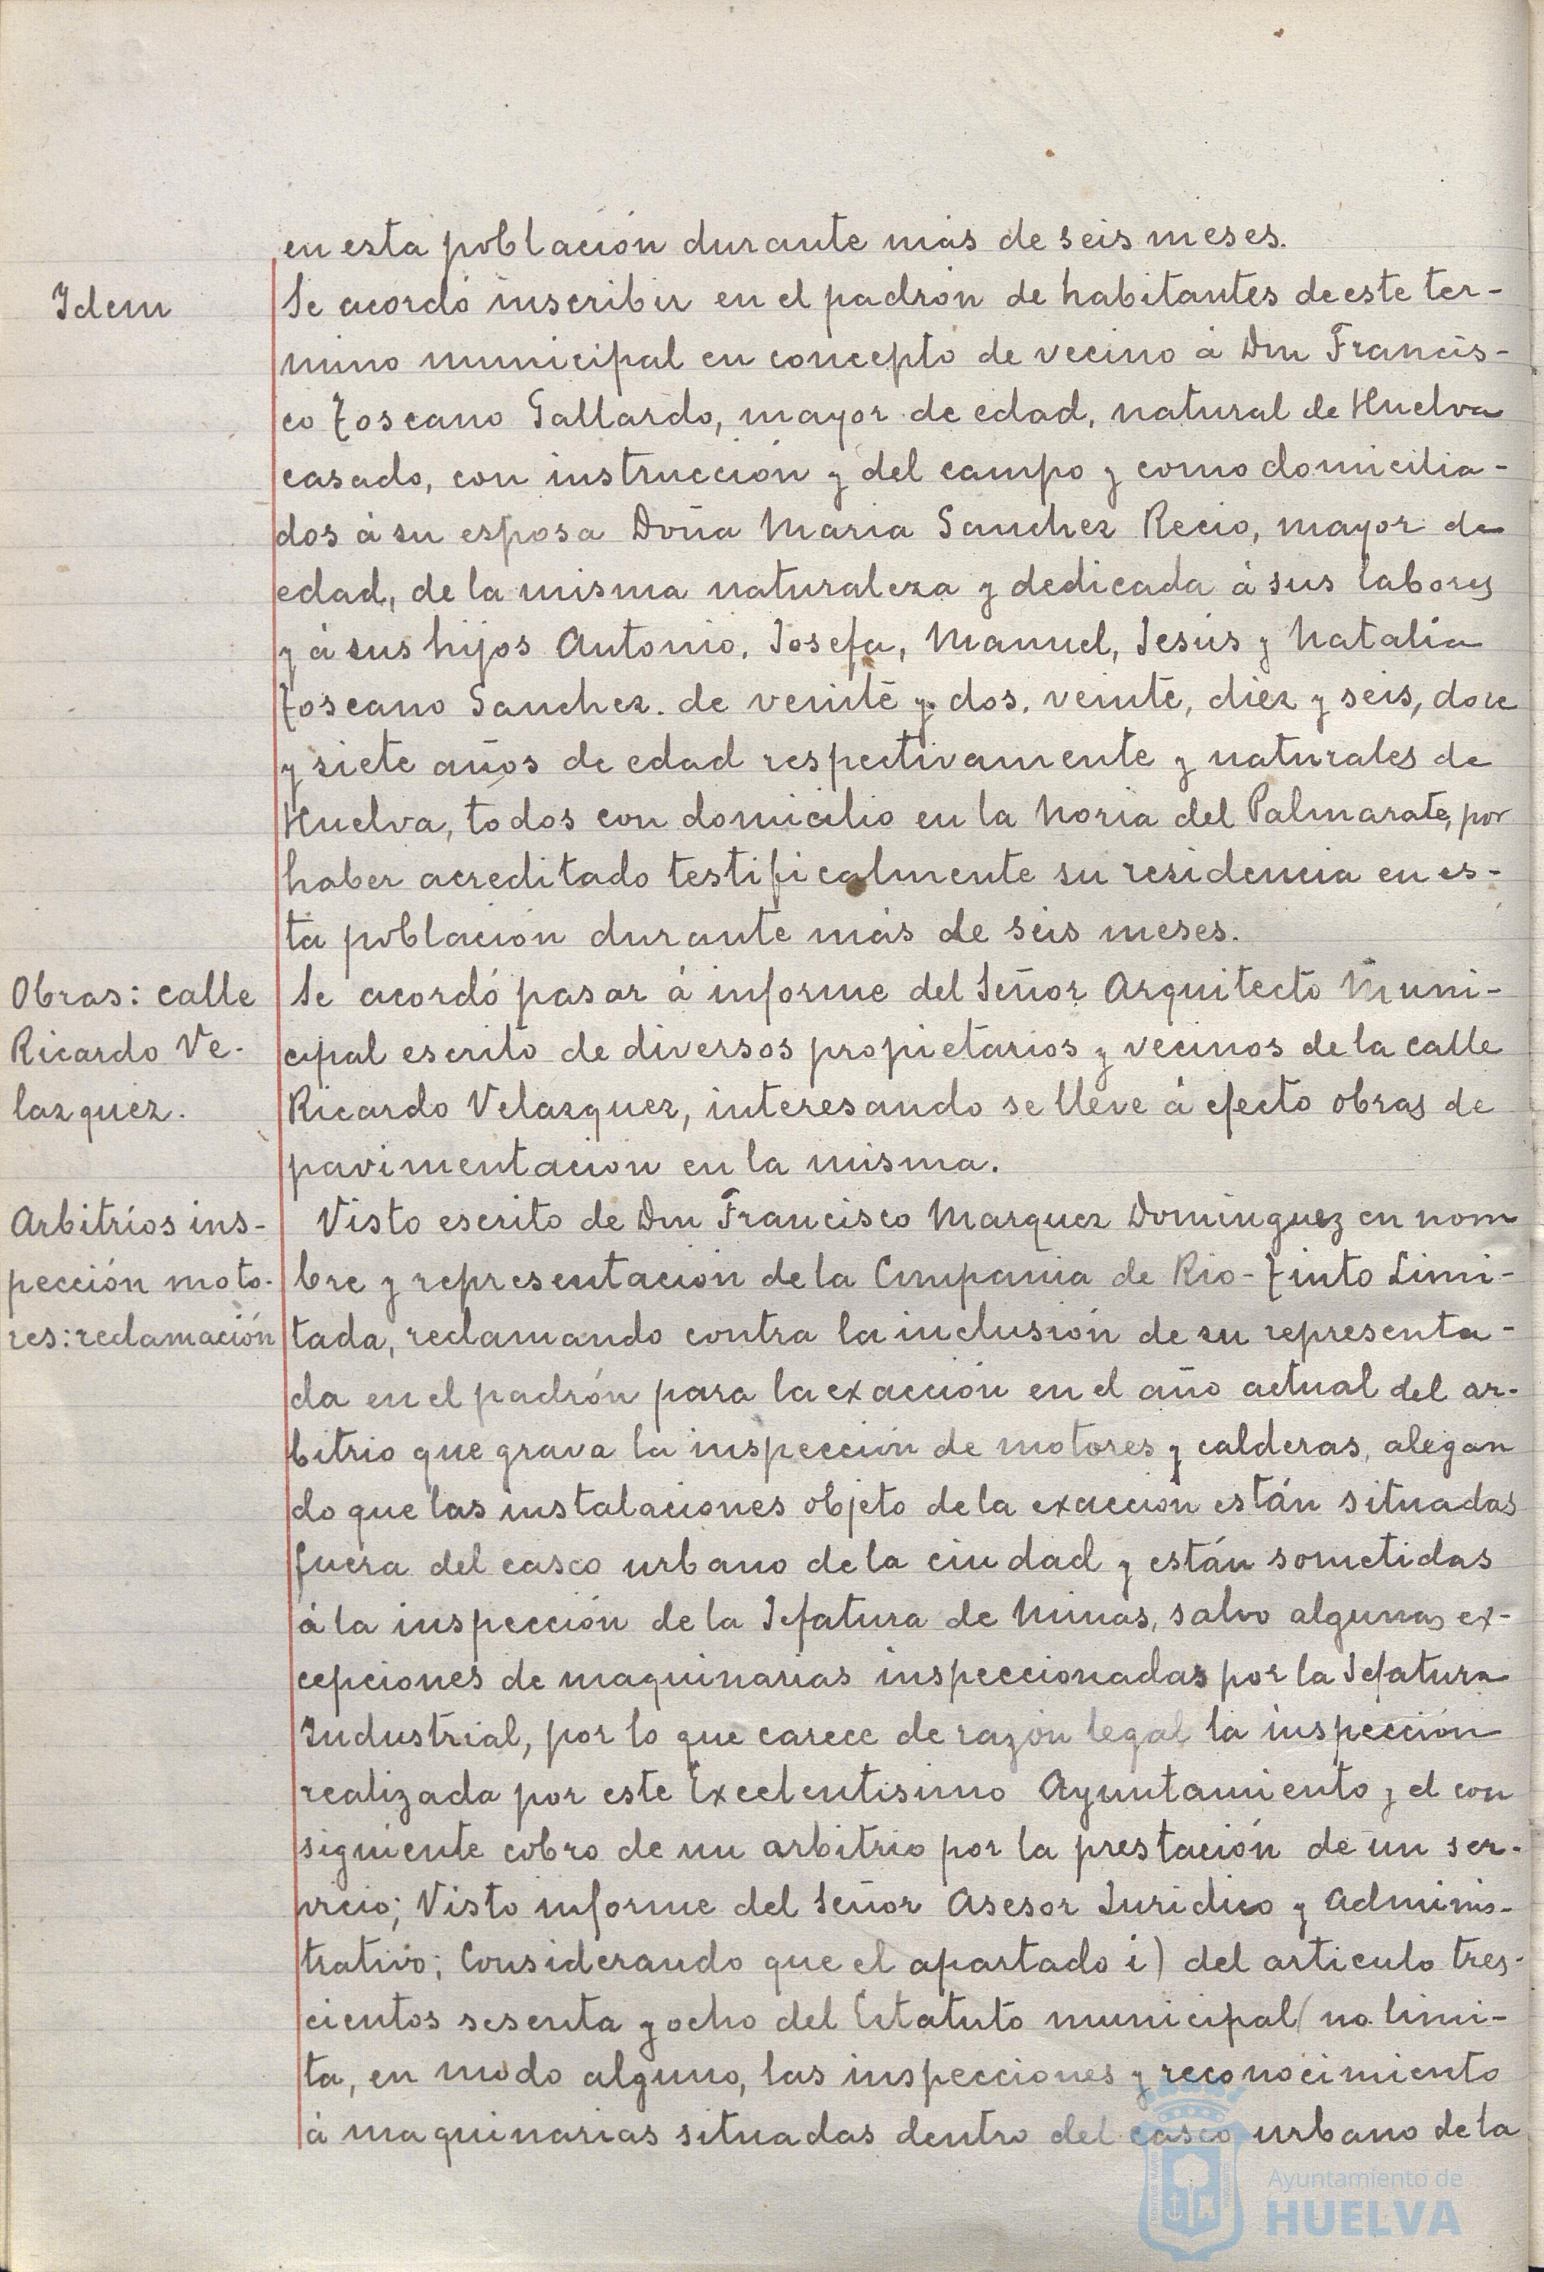 en esta población durante más de seis meses.
Idem
Se acordó inscribir en el padrón de habitantes de este ter-
mino municipal en concepto de vecino á Don Francis-
co Toscano Gallardo, mayor de edad, natural de Huelva
casado, con instrucción y del campo y como domicilia-
dos á su esposa Doña Maria Sanchez Recio, mayor de
edad, de la misma naturaleza y dedicada á sus labores
y á sus hijos Antonio, Josefa, Manuel, Jesús y Natalia
Toscano Sanchez. de veinte y dos, veinte, diez y seis, doce
y siete años de edad respectivamente y naturales de
Huelva, todos con domicilio en la Noria del Palmarate, por
haber acreditado testificalmente su residencia en es-
ta población durante más de seis meses.
Obras: calle
Ricardo Ve-
lazquez.
Se acordó pasar á informe del Señor Arquitecto Muni-
cipal escrito de diversos propietarios y vecinos de la calle
Ricardo Velazquez, interesando se lleve á efecto obras de
pavimentacion en la misma.
Arbitríos ins-
pección moto-
res: reclamación
Visto escrito de Don Francisco Marquez Dominguez en nom
bre y representacion de la Compania de Rio-Tinto Limi-
tada, reclamando contra la inclusión de su representa-
da en el padrón para la exacción en el año actual del ar-
bitrio que grava la inspección de motores y calderas, alegan
do que las instalaciones objeto de la exaccion están situadas
fuera del casco urbano de la ciudad y están sometidas
á la inspección de la Jefatura de Minas, salvo algunas ex-
cepciones de maquinarias inspeccionadas por la Jefatura
Industrial, por lo que carece de razón legal la inspección
realizada por este Excelentisimo Ayuntamiento y el con
siguiente cobro de un arbitrio por la prestación de un ser-
vicio; Visto informe del Señor Asesor Juridico y Adminis-
trativo; Considerando que el apartado i) del articulo tres-
cientos sesenta y ocho del Estatuto municipal no limi-
ta, en modo alguno, las inspecciones y reconocimiento
á maquinarias situadas dentro del casco urbano de la
Ayuntamiento de
HUELVA